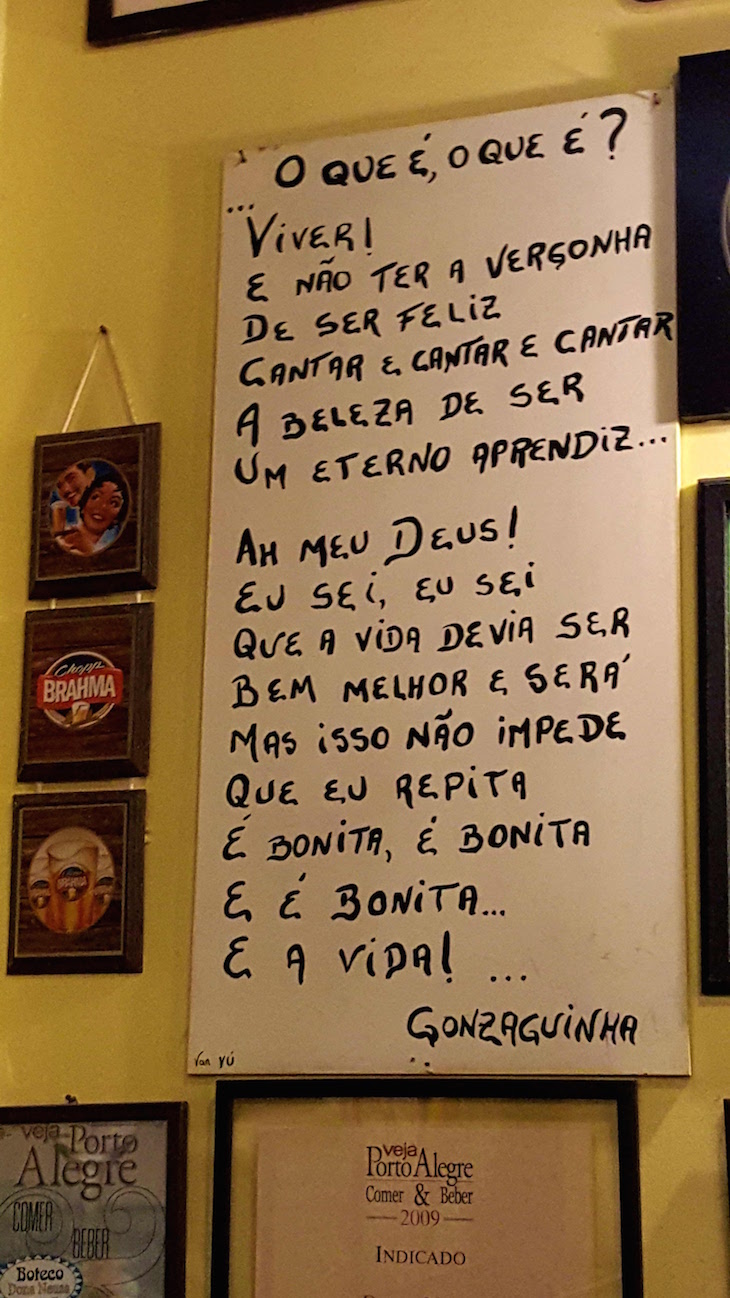 O QUE É, O QUE É?
...
VIVER!
E NÃO TER A VERGONHA
DE SER FELIZ
CANTAR E CANTAR E CANTAR
A BELEZA DE SER
UM ETERNO APRENDIZ...
AH MEU DEUS!
EU SEI, EU SEI
QUE A VIDA DEVIA SER
BEM MELHOR E SERÁ
MAS ISSO NÃO IMPEDE
QUE EU REPITA
É BONITA, É BONITA
E É BONITA...
E A VIDA! ...
GONZAGUINHA
Van YÚ
Chopp
BRAHMA
BRAHMA
veja Porto
Alegre
COMER
BEBER
Boteco
Dona Neusa
veja
Porto Alegre
Comer & Beber
2009
INDICADO